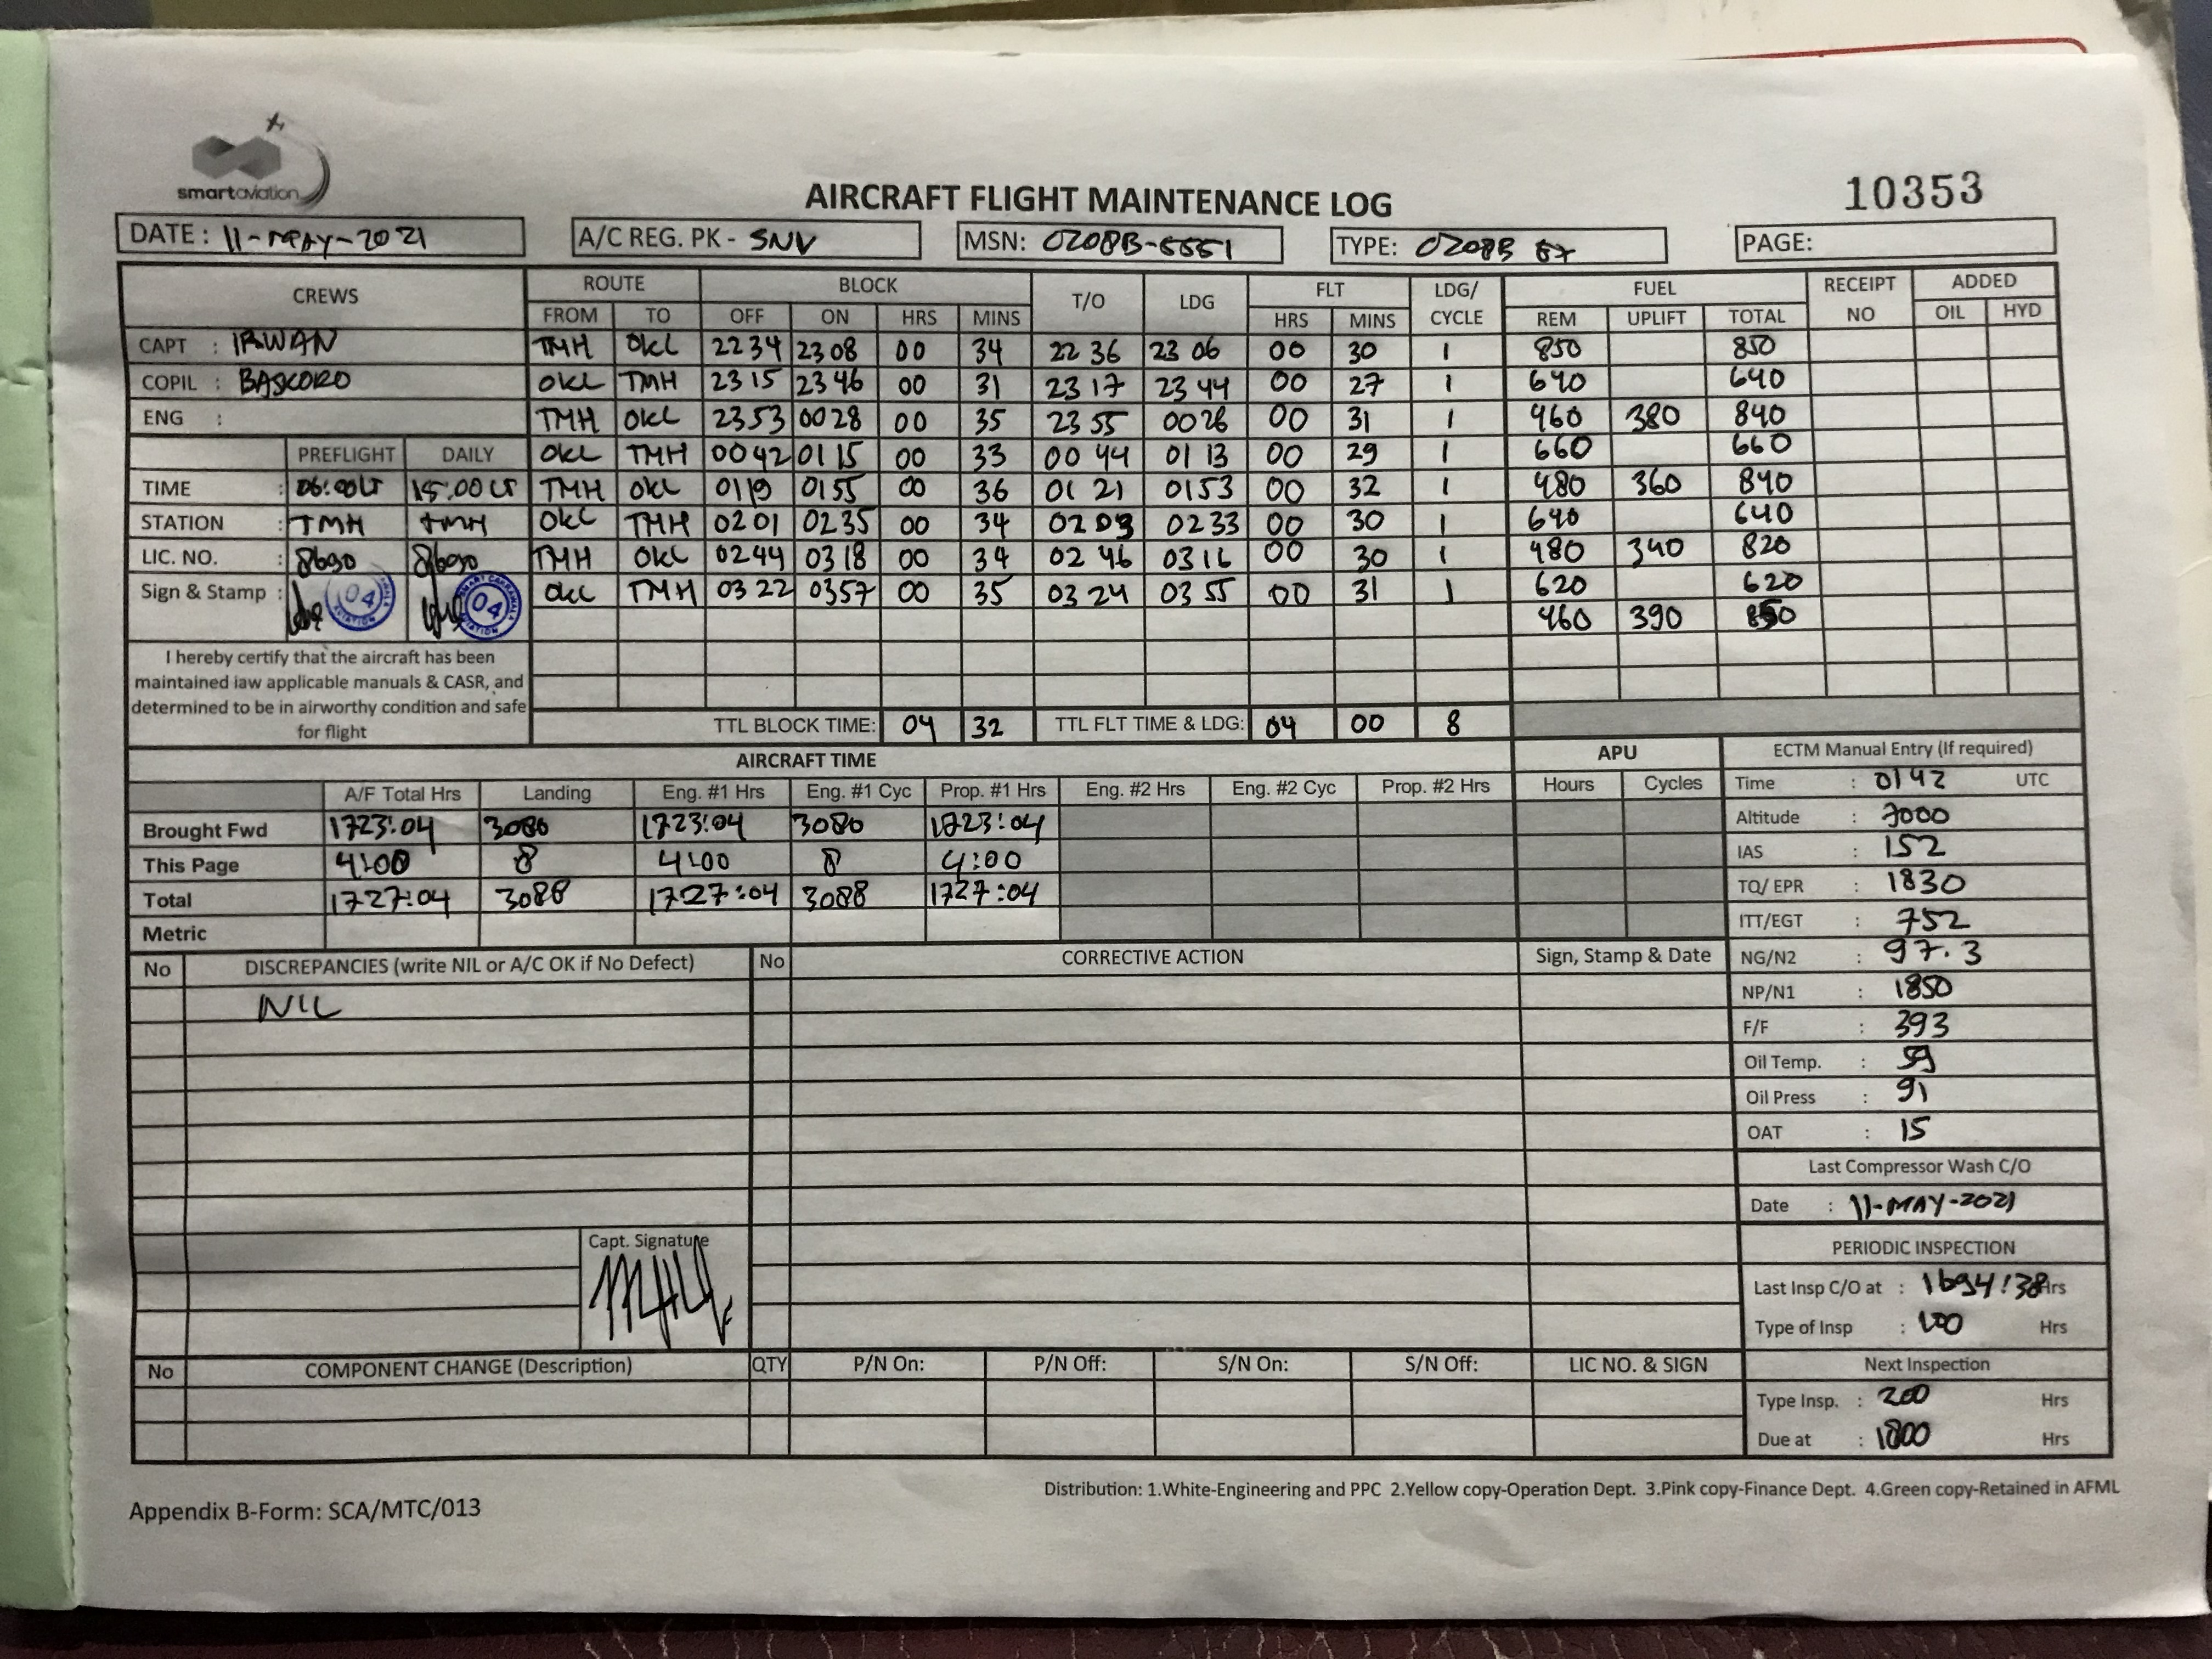 smartaviation
AIRCRAFT FLIGHT MAINTENANCE LOG
10353
DATE : 11-MAY-2021 A/C REG. PK - SNV MSN: 0208B-5551 TYPE: 0208B EX PAGE:
CREWS ROUTE BLOCK T/O LDG FLT LDG/ CYCLE FUEL RECEIPT NO ADDED
FROM TO OFF ON HRS MINS HRS MINS REM UPLIFT TOTAL OIL HYD
CAPT : IRWAN TMH OKL 22 34 23 08 00 34 22 36 23 06 00 30 1 850 850
COPIL : BASKORO OKL TMH 23 15 23 46 00 31 23 17 23 44 00 27 1 640 640
ENG : TMH OKL 23 53 00 28 00 35 23 55 00 26 00 31 1 460 380 840
PREFLIGHT DAILY OKL TMH 00 42 01 15 00 33 00 44 01 13 00 29 1 660 660
TIME : 06:00LT 15:00LT TMH OKL 01 19 01 55 00 36 01 21 01 53 00 32 1 480 360 840
STATION : TMH TMH OKL TMH 02 01 02 35 00 34 02 03 02 33 00 30 1 640 640
LIC. NO. : 8690 8690 TMH OKL 02 44 03 18 00 34 02 46 03 16 00 30 1 480 340 820
Sign & Stamp : 04 04 OKL TMH 03 22 03 57 00 35 03 24 03 55 00 31 1 620 620
460 390 850
I hereby certify that the aircraft has been
maintained iaw applicable manuals & CASR, and
determined to be in airworthy condition and safe
for flight
TTL BLOCK TIME: 04 32 TTL FLT TIME & LDG: 04 00 8
AIRCRAFT TIME APU ECTM Manual Entry (If required)
A/F Total Hrs Landing Eng. #1 Hrs Eng. #1 Cyc Prop. #1 Hrs Eng. #2 Hrs Eng. #2 Cyc Prop. #2 Hrs Hours Cycles Time : 0142 UTC
Brought Fwd 1723:04 3080 1723:04 3080 1723:04 Altitude : 7000
This Page 4:00 8 4:00 8 4:00 IAS : 152
Total 1727:04 3088 1727:04 3088 1727:04 TQ/ EPR : 1830
Metric ITT/EGT : 752
No DISCREPANCIES (write NIL or A/C OK if No Defect) No CORRECTIVE ACTION Sign, Stamp & Date NG/N2 : 97.3
NIL NP/N1 : 1850
F/F : 393
Oil Temp. : 59
Oil Press : 91
OAT : 15
Last Compressor Wash C/O
Date : 11-MAY-2021
Capt. Signature
PERIODIC INSPECTION
Last Insp C/O at : 1694:38 Hrs
Type of Insp : 100 Hrs
No COMPONENT CHANGE (Description) QTY P/N On: P/N Off: S/N On: S/N Off: LIC NO. & SIGN Next Inspection
Type Insp. : 200 Hrs
Due at : 1800 Hrs
Distribution: 1.White-Engineering and PPC 2.Yellow copy-Operation Dept. 3.Pink copy-Finance Dept. 4.Green copy-Retained in AFML
Appendix B-Form: SCA/MTC/013